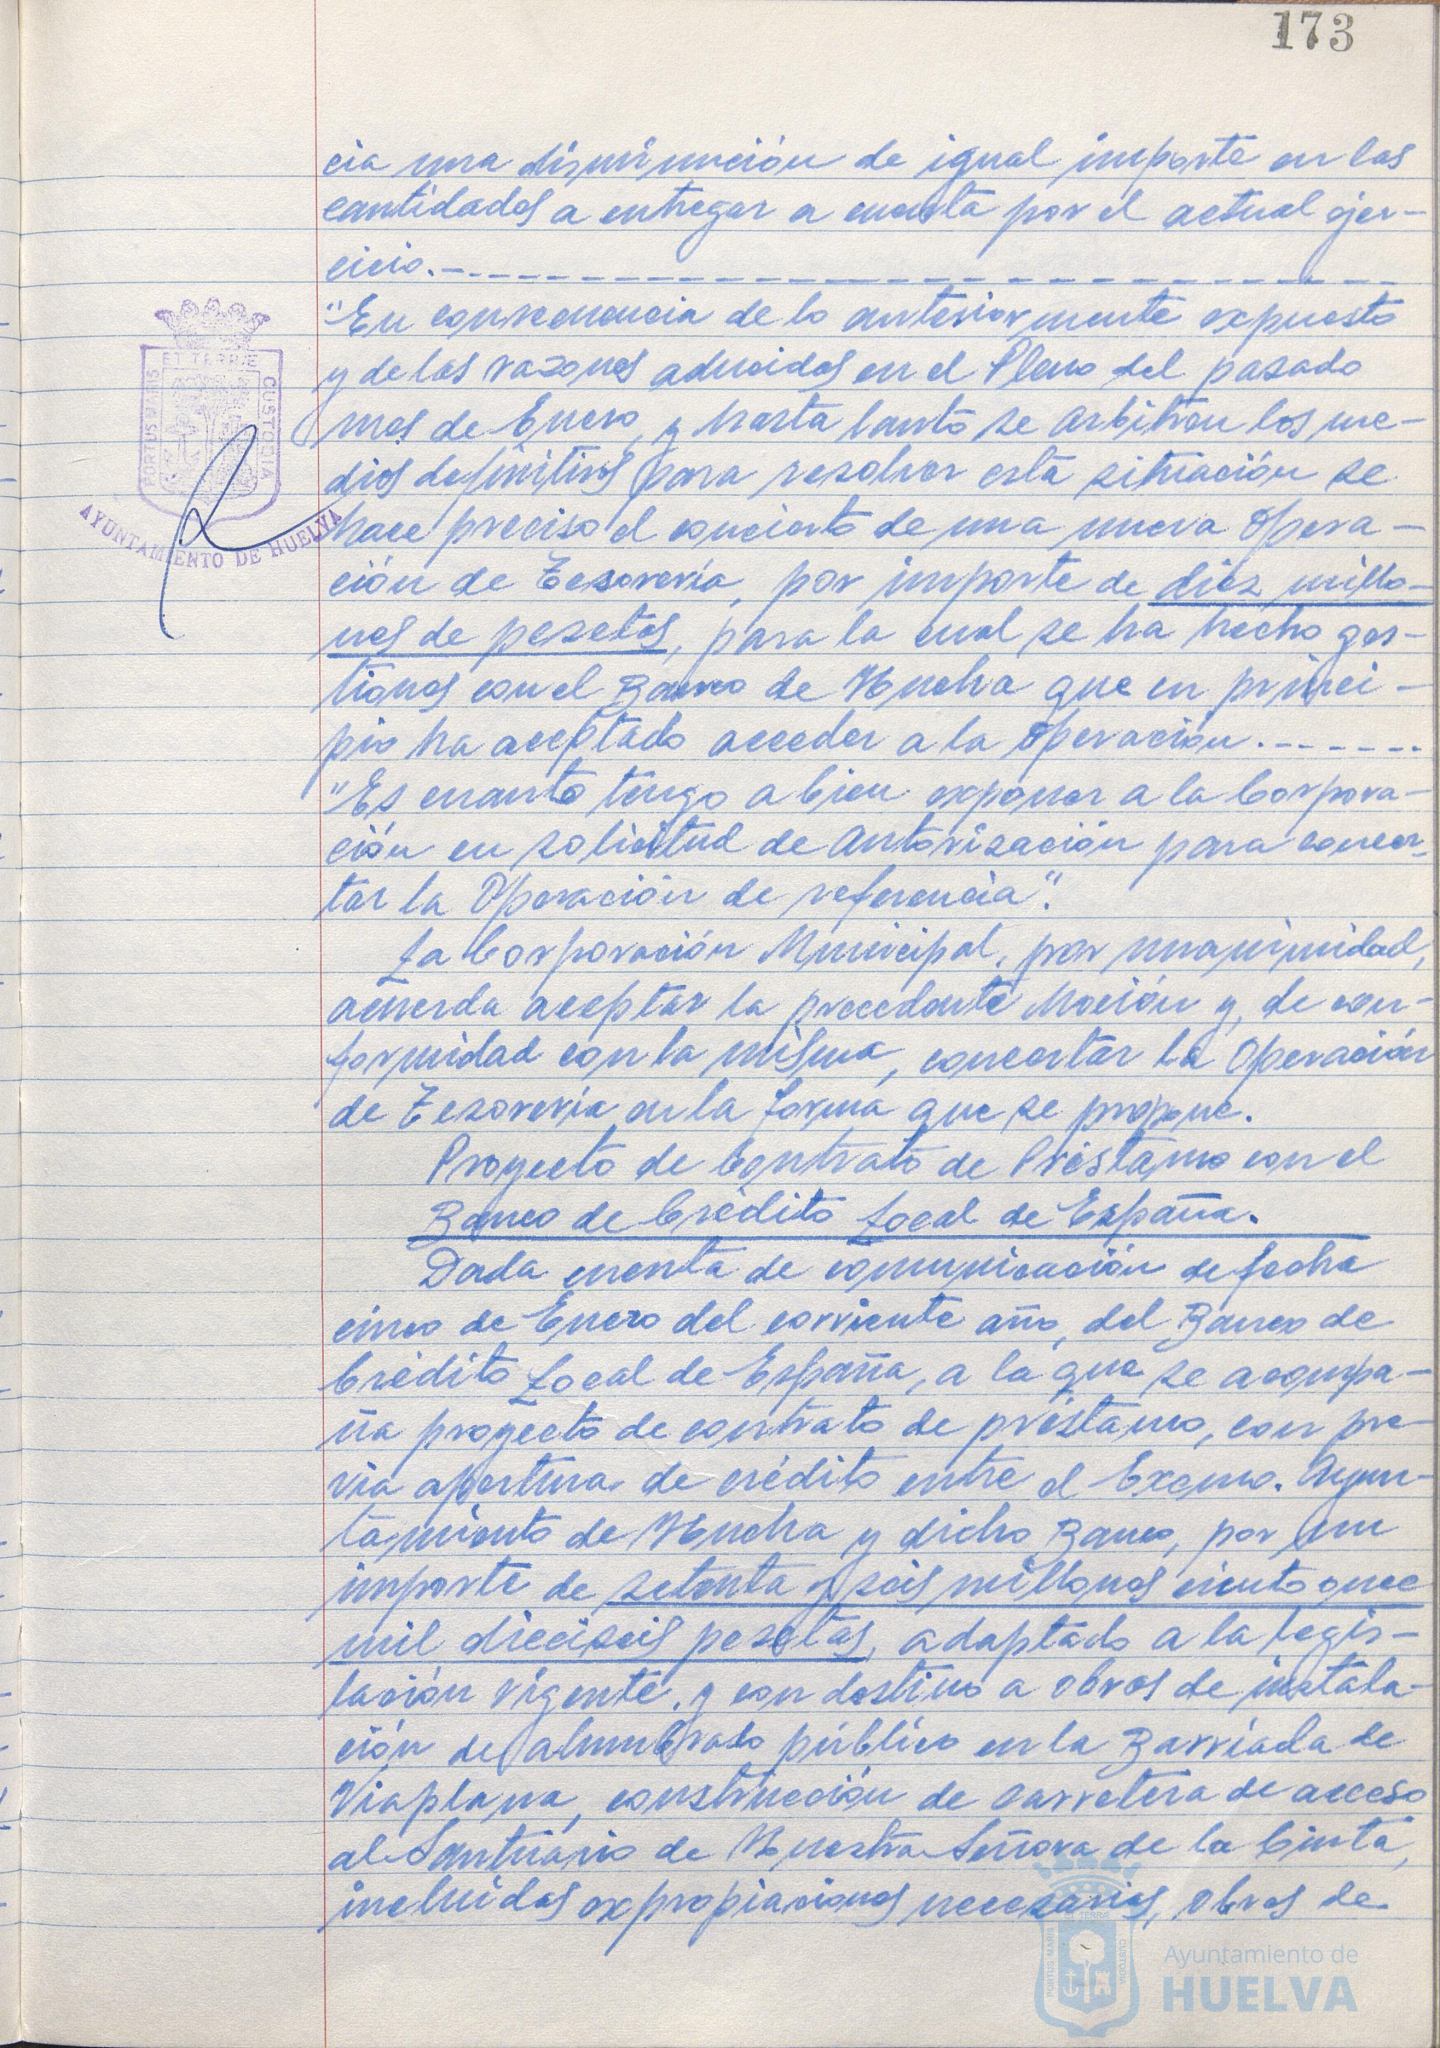 173
cia una disminución de igual importe en las
cantidades a entregar a cuenta por el actual ejer-
cicio.-
"En consecuencia de lo anteriormente expuesto
y de las razones aducidas en el Pleno del pasado
mes de Enero, y hasta tanto se arbitren los me-
dios definitivos para resolver esta situación se
hace preciso el concierto de una nueva Opera-
ción de Tesorería, por importe de diez millo-
nes de pesetas, para la cual se ha hecho ges-
tiones con el Banco de Huelva que en princi-
pio ha aceptado acceder a la Operación.-
"Es cuanto tengo a bien exponer a la Corpora-
ción en solicitud de autorización para concer-
tar la Operación de referencia".
La Corporación Municipal, por unanimidad,
acuerda aceptar la precedente Moción y, de con-
formidad con la misma, concertar la Operación
de Tesorería en la forma que se propone.
Proyecto de Contrato de Préstamo con el
Banco de Crédito Local de España.
Dada cuenta de comunicación de fecha
cinco de Enero del corriente año, del Banco de
Crédito Local de España, a la que se acompa-
ña proyecto de contrato de préstamo, con pre-
via apertura de crédito entre el Excmo. Ayun-
tamiento de Huelva y dicho Banco, por un
importe de setenta y seis millones ciento once
mil dieciseis pesetas, adaptado a la legis-
lación vigente, y con destino a obras de instala-
ción de alumbrado público en la Barriada de
Viaplana, construcción de carretera de acceso
al Santuario de Nuestra Señora de la Cinta,
incluidas expropiaciones necesarias, obras de
PORTUS MARIS ET TERRE CUSTODIA
AYUNTAMIENTO DE HUELVA
PORTUS MARIS ET TERRE CUSTODIA
Ayuntamiento de
HUELVA